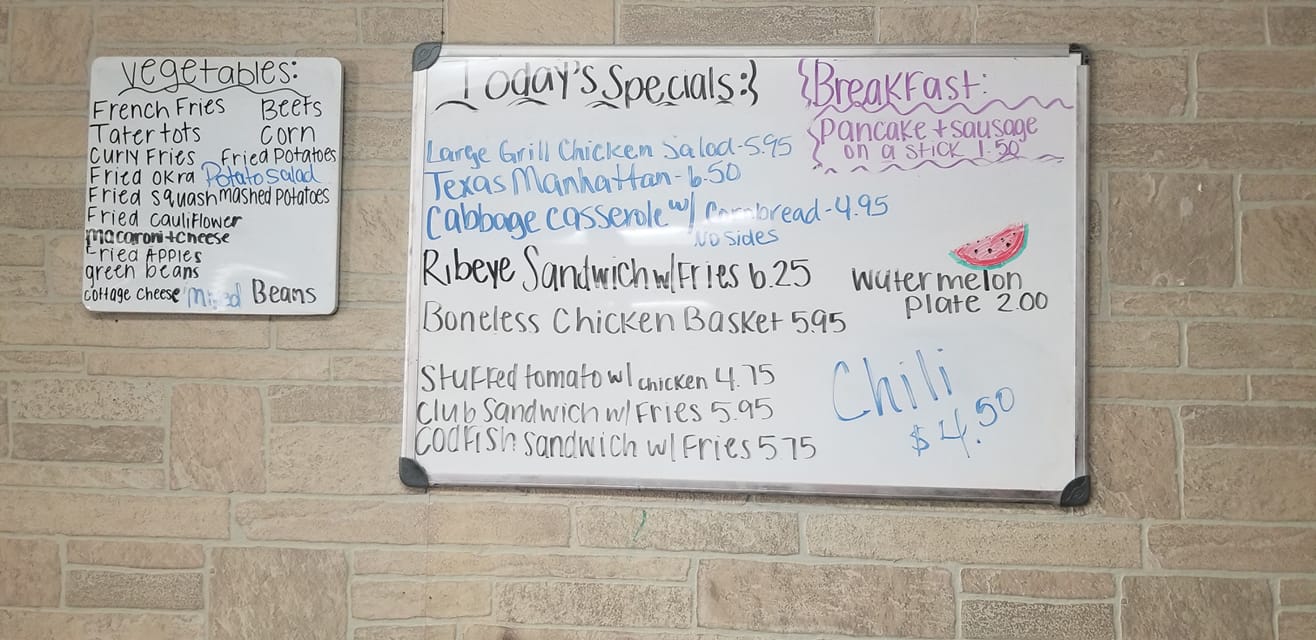 Vegetables:
French Fries Beets
Tater tots Corn
Curly Fries Fried Potatoes
Fried okra Potato Salad
Fried Squash mashed Potatoes
Fried cauliflower
macaroni + cheese
Fried Apples
green beans
cottage cheese mixed Beans
Today's Specials:}
Large Grill Chicken Salad - 5.95
Texas Manhattan - 6.50
Cabbage casserole w/ Cornbread - 4.95
No Sides
Ribeye Sandwich w/ Fries 6.25
Boneless Chicken Basket 5.95
Stuffed tomato w/ chicken 4.75
Club Sandwich w/ Fries 5.95
Codfish Sandwich w/ Fries 5.75
{Breakfast:
Pancake + sausage
on a stick 1.50
Watermelon
plate 2.00
Chili
$4.50